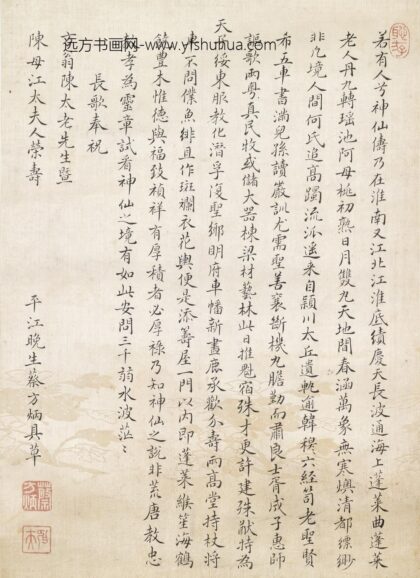 远方书画网-www.yfshufa.com
若有人兮神仙儔乃在淮南又江北江淮底績慶天長波通海上蓬萊曲蓬萊
老人丹九轉瑤池阿母桃初熟日月雙丸天地間春涵萬象無寒燠清都縹緲
非凡境人間何氏追高躅流派遙來自潁川太丘遺軌邇韓穆六經笥老聖賢
希五車書滿兒孫讀嚴訓尤需聖善襄斷機九膽勤而肅良士胥成子惠師
謳歌兩粤真民牧或儲大器棟梁材藝林此日推魁宿殊才更許建殊猷特為
天子綏東服教化潛孚復聖鄉明府車幡新畫鹿承歡分壽兩高堂持杖將
車不問僕魚緋且作斑斕衣花輿便是添籌屋一門以內即蓬萊緱笙海鶴
皆豐本惟德與福致禎祥有厚積者必厚祿乃知神仙之說非荒唐教忠
教孝為靈章試看神仙之境有如此安問三千弱水波茫
長歌奉祝
翁陳太老先生暨
陳母江太夫人榮壽
平江晚生蔡方炳具草